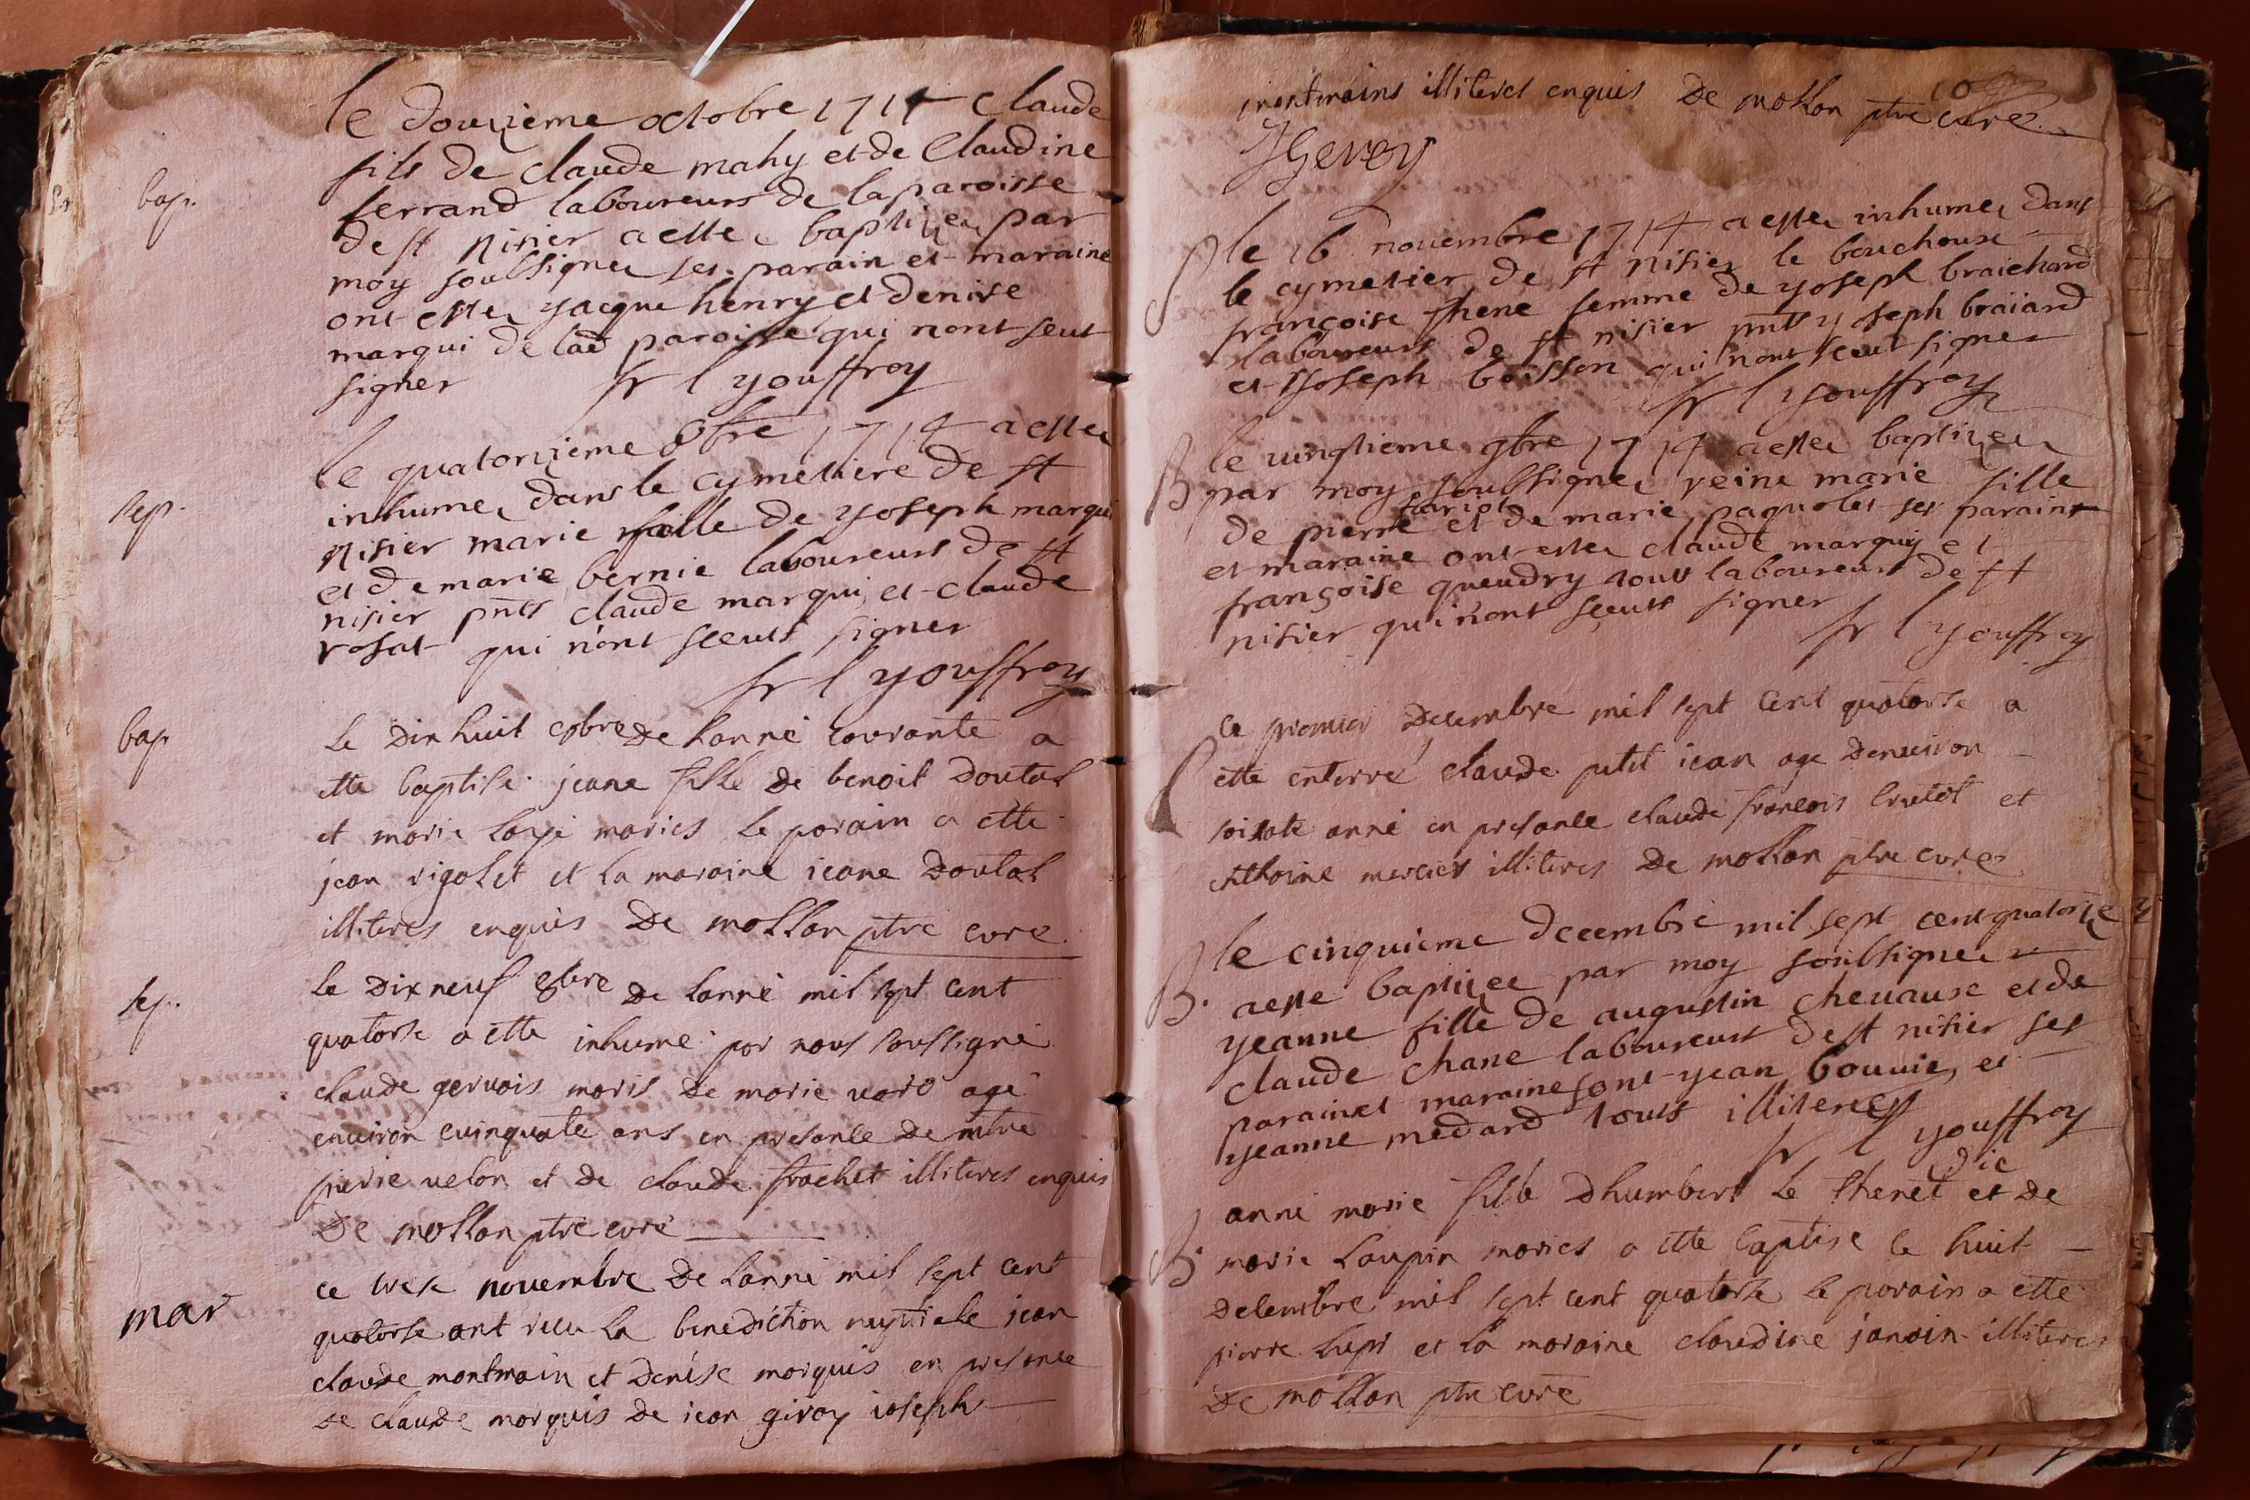 bap.
le douzieme octobre 1714 Claude
fils de claude mahy et de Claudine
ferrand laboureurs de la paroisse
de st nisier a estee baptizee par
moy soubsignee ses parain et maraine
ont estee yacque henry et denise
marqui de lad paroisse qui nont seut
signer fr l youffroy
sep.
le quatorzieme 8bre 1714 a estee
inhumee dans le cymetiere de st
nisier marie fille de yoseph marqui
et de marie bernie laboureurs de st
nisier pnts claude marqui et claude
rosat qui n'ont sceuts signer
fr l youffroy
bap
le dixhuit de lanné courante a
etté baptise jeane fille de benoit doutal
et marie maries le parain a etté
jean rigolet et la maraine jeane doutal
illiteres enquis De mollan ptre curé
sep.
le dix neuf 8bre de lanné mil sept cent
quatorse a etté inhumé par nous soussigné
claude gervais maris de marie varo agé
environ cuinquate ans en presance de
pierre velon et de claude frachet illiteres enquis
De mollan ptre curé
mar
ce trese novembre de lanné mil sept cent
quatorse ont recu la benediction nuptiale jean
claude montmain et denise marquis en presance
de claude marquis de jean giroy joseph
montmains illiteres enquis De mollan ptre curé
10
JGevey
S
le 16 novembre 1714 a estee inhumee dans
le cymetier de st nisier le bouchoux
françoise thene femme de yoseph braichard
laboureurs de st nisier pnts yoseph braiard
et yoseph boisson qui n'ont sceut signer
fr l youffroy
B
le vingtieme 9bre 1714 a estee baptizee
par moy soubsignee reine marie fille
de pierre et de marie paquolet ses parains
et maraine ont estee claude marquy et
françoise queudry tous laboureurs de st
nisier qui n'ont sceuts signer
fr l youffroy
S
ce premier decembre mil sept cent quatorse a
etté enterré claude petit jean age denviron
soisate anné en presance claude francois et
anthoine mercier illiteres De mollan ptre curé
B.
le cinquieme decembre mil sept cent quatorze
a este baptizee par moy soubsignee
yeanne fille de augustin chevaux et de
claude chane laboureurs de st nisier ses
parain et maraine sont yean bouvie, et
yeanne medard tous illiteres
fr l youffroy
B.
anne marie fille dhumbert le thenet dic et de
marie loupin maries a etté baptise le huit
decembre mil sept cent quatorse le parain a etté
pierre et la maraine claudine janoin illiteres
De mollan ptre curé